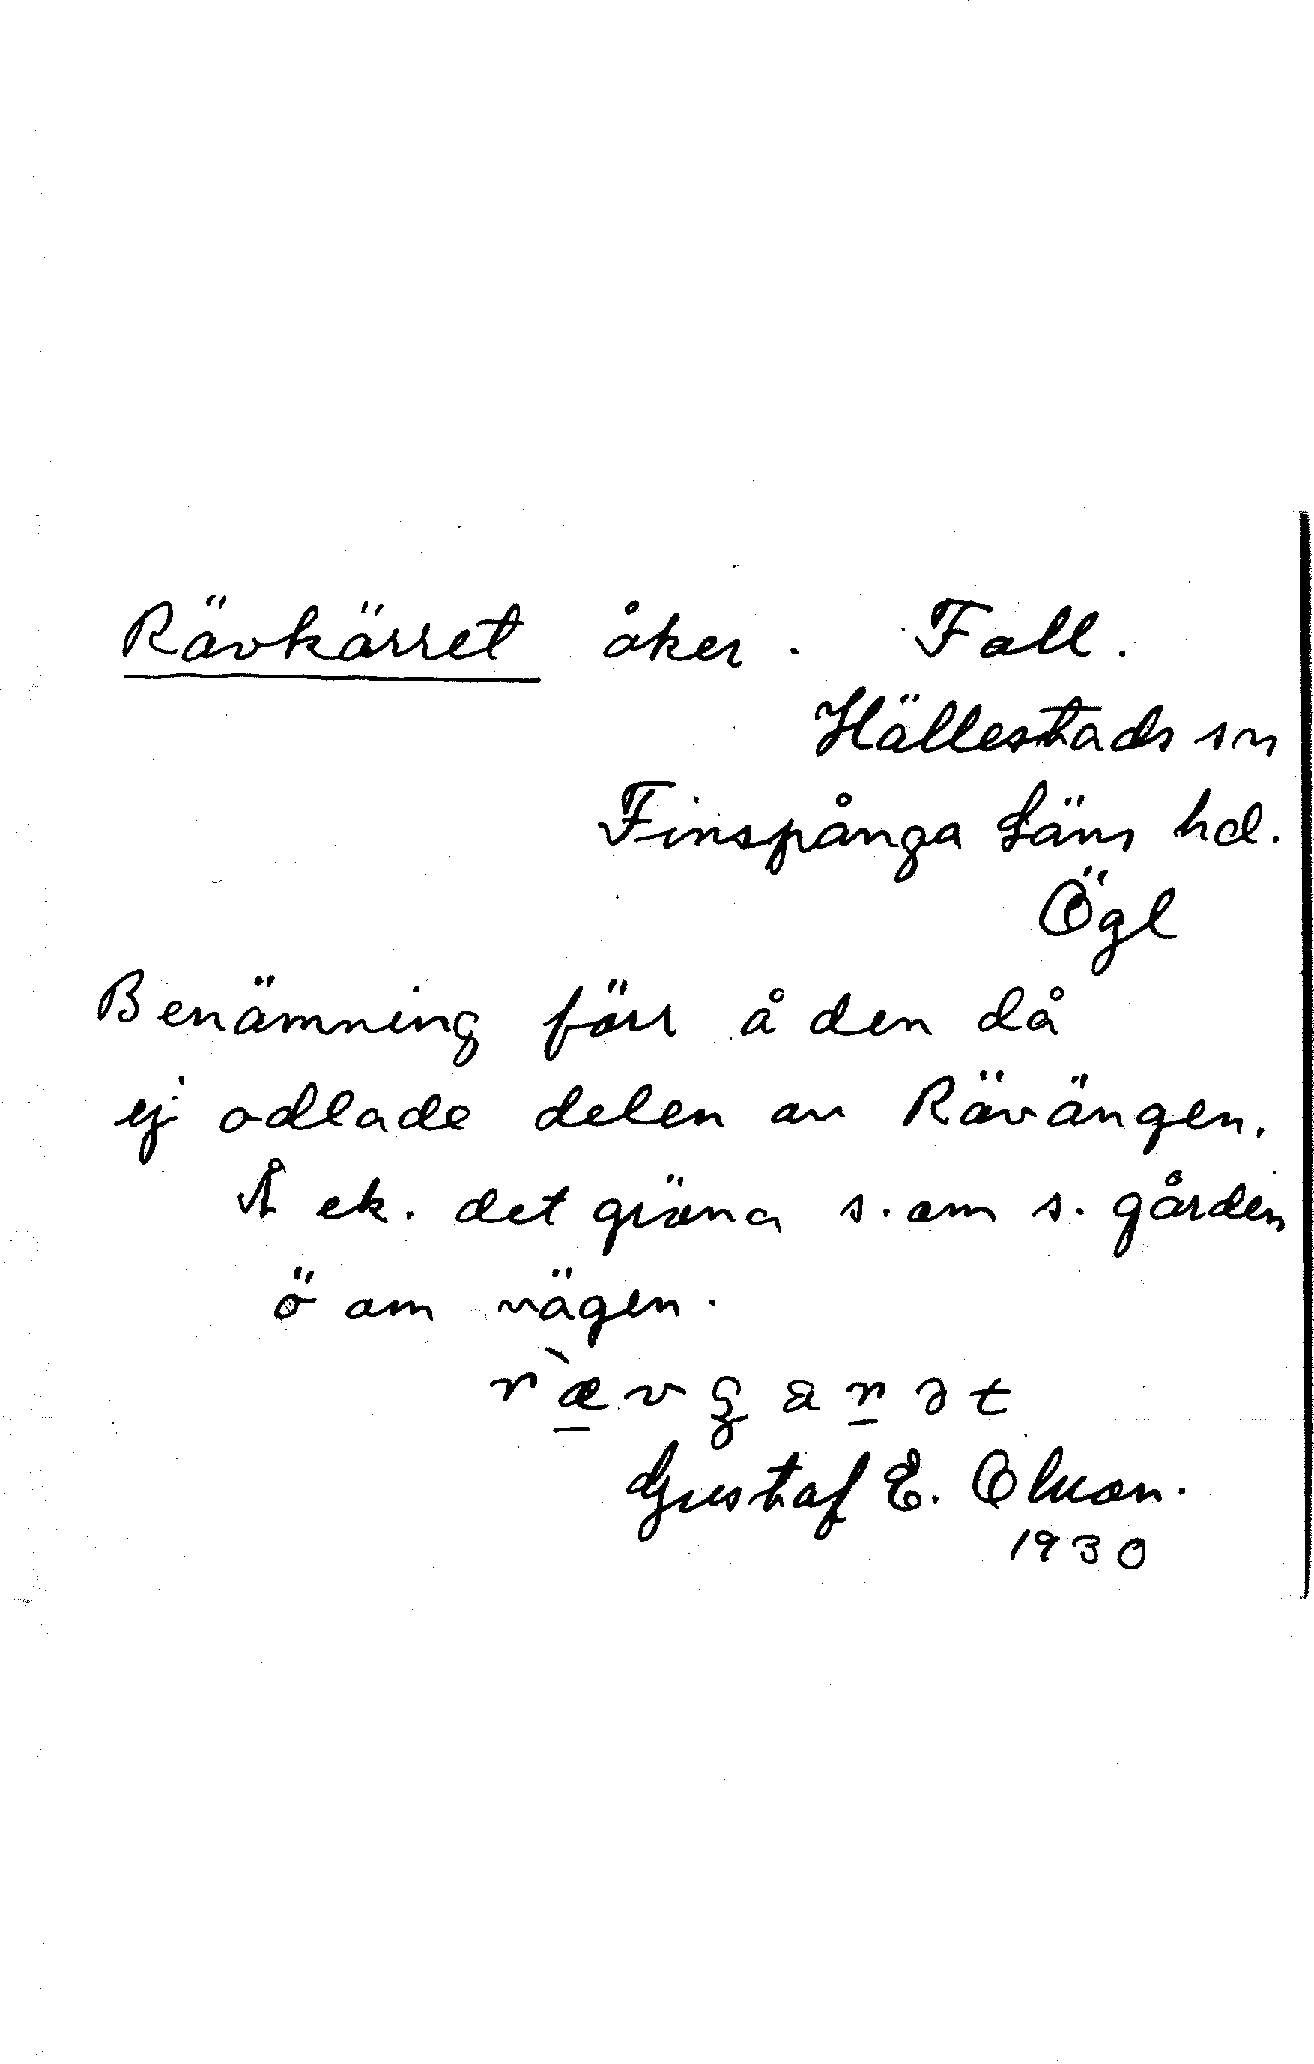 Rävkärret åker. Fall.
Hällestads sn
Finspånga Läns hd.
Ögl
Benämning förr å den då
ej odlade delen av Rävängen.
Å ek. det gröna s. om s. gården
ö om vägen.
Gustaf E. Olsson.
1930